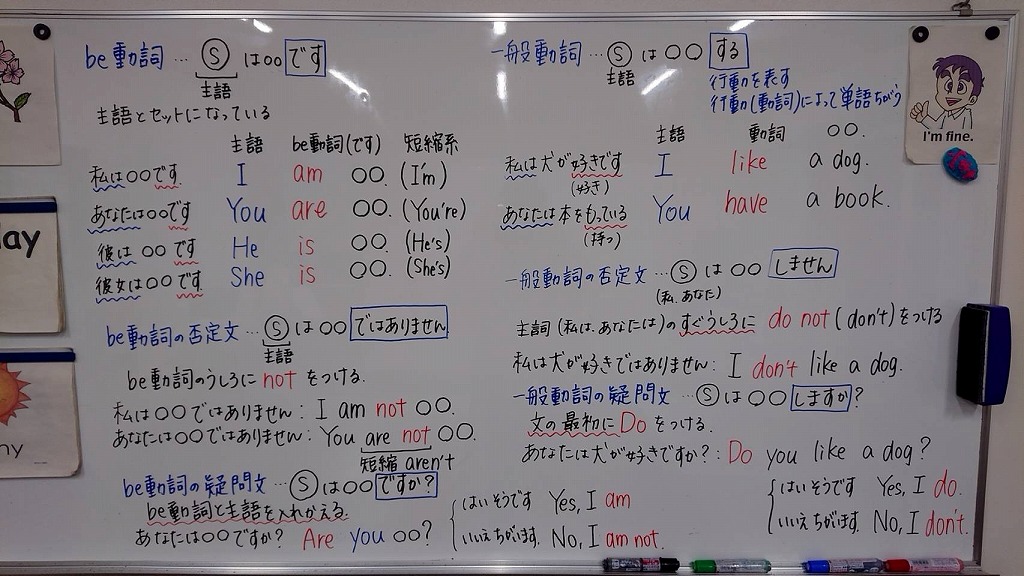 be動詞 … Ⓢ は○○ です
主語
主語とセットになっている
主語 be動詞(です) 短縮系
私は○○です I am ○○. (I'm)
あなたは○○です You are ○○. (You're)
彼は○○です He is ○○. (He's)
彼女は○○です She is ○○. (She's)
be動詞の否定文 … Ⓢ は○○ ではありません
主語
be動詞のうしろに not をつける.
私は○○ではありません: I am not ○○.
あなたは○○ではありません: You are not ○○.
短縮 aren't
be動詞の疑問文 … Ⓢ は○○ ですか?
be動詞と主語を入れかえる.
あなたは○○ですか? Are you ○○?
はいそうです Yes, I am
いいえちがいます. No, I am not.
一般動詞 … Ⓢ は ○○ する
主語
行動を表す
行動(動詞)によって単語ちがう
主語 動詞 ○○.
私は犬が好きです I like a dog.
(好き)
あなたは本をもっている You have a book.
(持つ)
一般動詞の否定文 … Ⓢ は ○○ しません
(私、あなた)
主詞(私は、あなたは)のすぐうしろに do not (don't) をつける
私は犬が好きではありません: I don't like a dog.
一般動詞の疑問文 … Ⓢ は ○○ しますか?
文の最初に Do をつける.
あなたは犬が好きですか?: Do you like a dog?
はいそうです Yes, I do.
いいえちがいます. No, I don't.
I'm fine.
lay
ny